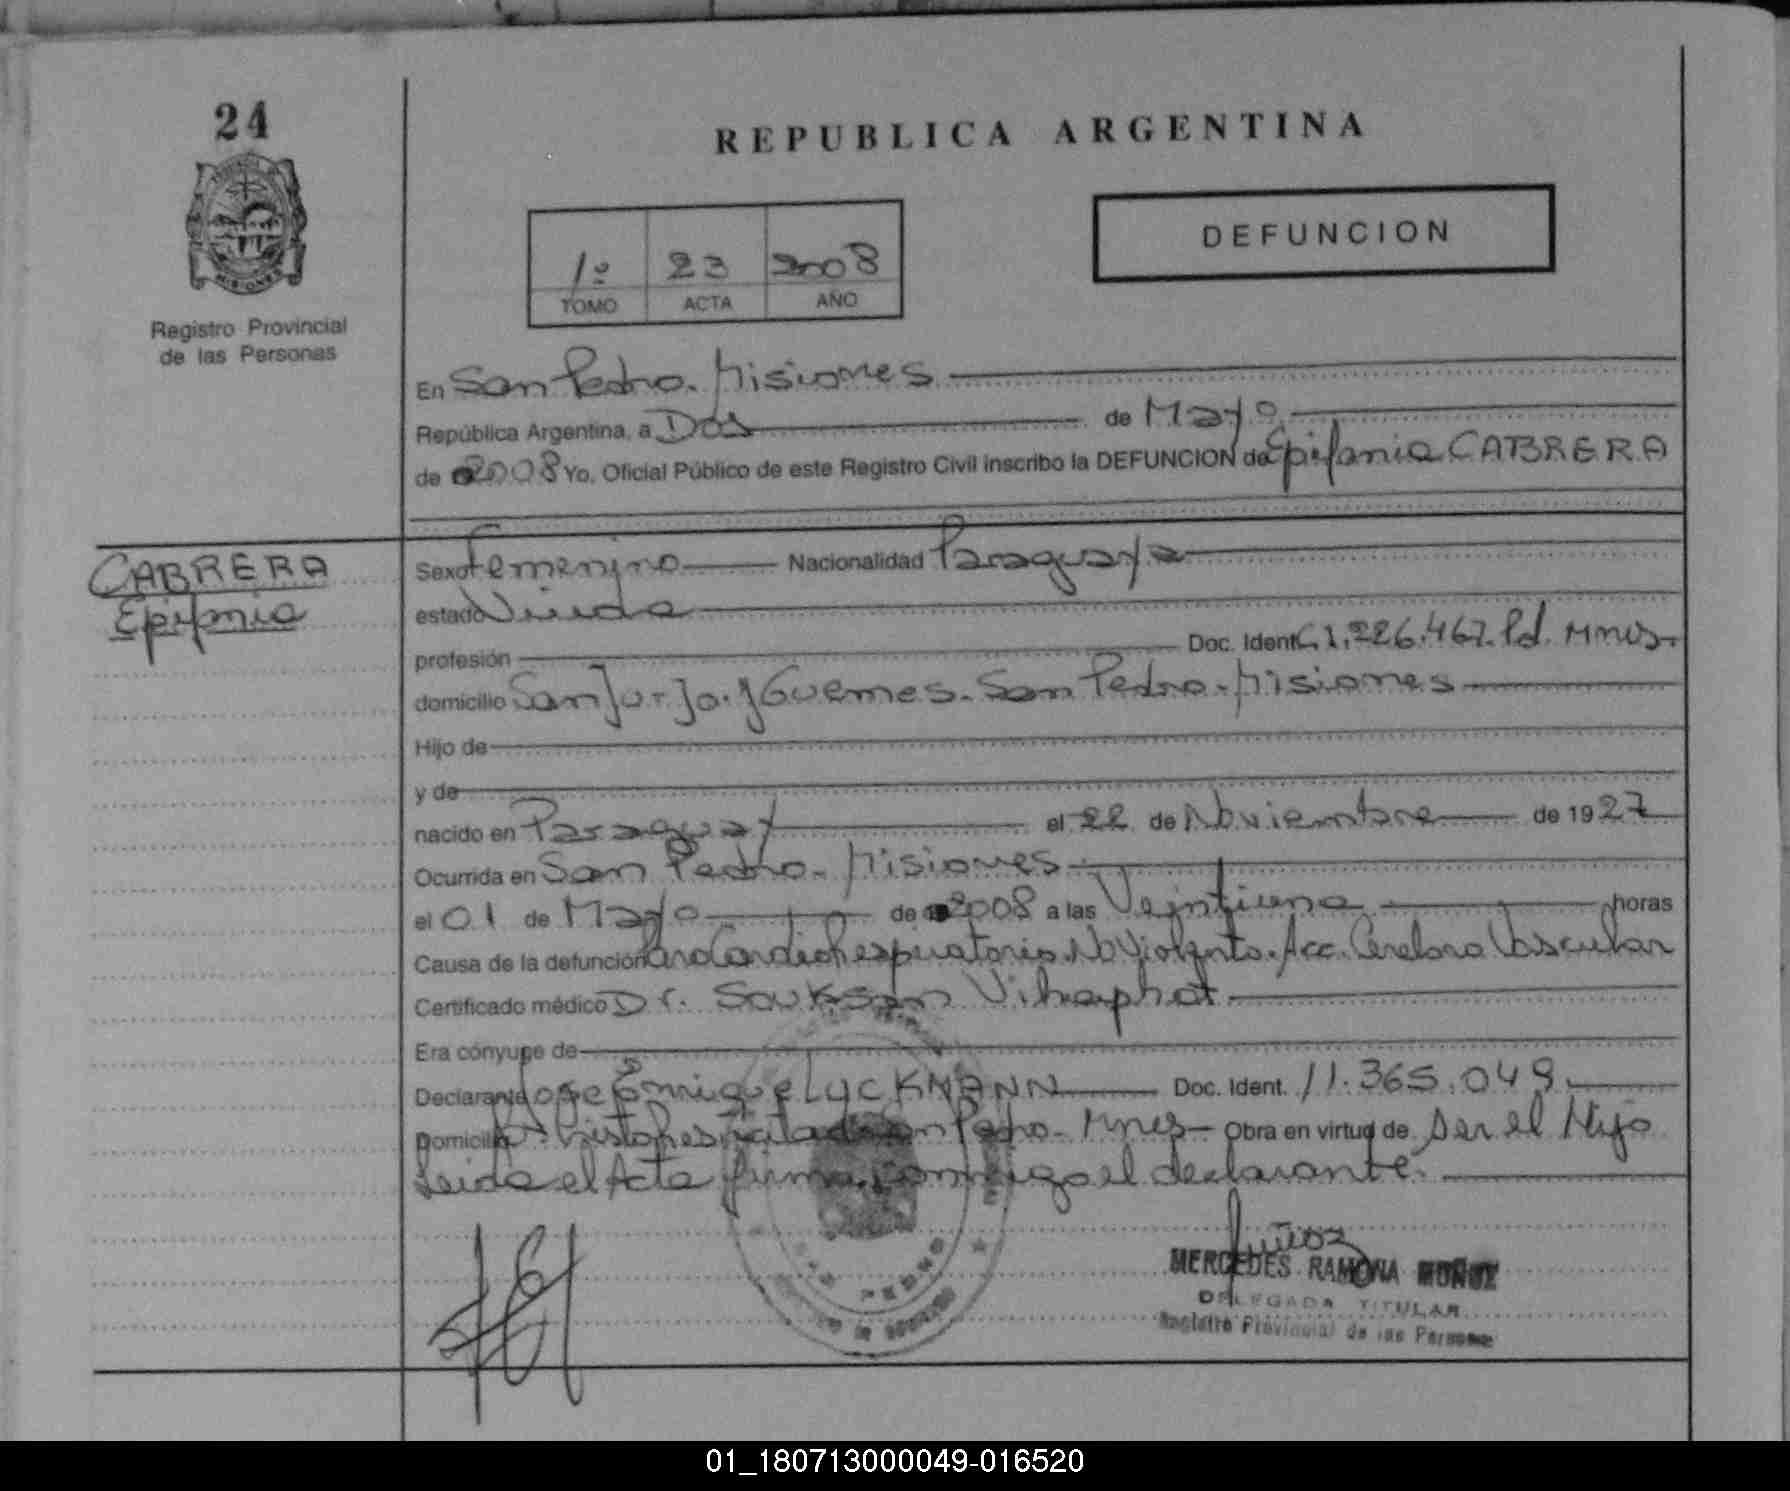 24
REPUBLICA ARGENTINA
DEFUNCION
1º 23 2008
TOMO ACTA AÑO
Registro Provincial
de las Personas
En San Pedro. Misiones
República Argentina, a Dos de Mayo
de 2008 Yo, Oficial Público de este Registro Civil inscribo la DEFUNCION de Epifania CABRERA
CABRERA
Epifania
Sexo Femenino Nacionalidad Paraguaya
estado Viuda
profesión Doc. Ident. C.I. 226.467. Pd. Mnes.
domicilio San Jorje y Guemes. San Pedro. Misiones
Hijo de
y de
nacido en Paraguay el 22 de Noviembre de 1927
Ocurrida en San Pedro. Misiones
el 01 de Mayo de 2008 a las Veintiuna horas
Causa de la defunción Paro Cardio Respiratorio. No Violento. Acc. Cerebro Vascular
Certificado médico Dr. Souksan Vihaphat
Era cónyuge de
Declarante Jose Enrique LUCKMANN Doc. Ident. 11.365.049
Domicilio San Pedro. Mnes Obra en virtud de Ser el Hijo
Leida el Acta firma conmigo el declarante.
Muñoz
MERCEDES RAMONA MUÑOZ
DELEGADA TITULAR
Registro Provincial de las Personas
01_180713000049-016520